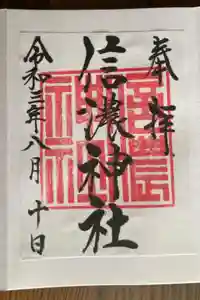 奉拝
信濃神社
令和三年八月十日